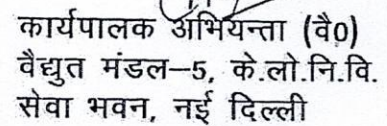 कार्यपालक अभियन्ता (वै0)
वैद्युत मंडल–5, के.लो.नि.वि.
सेवा भवन, नई दिल्ली